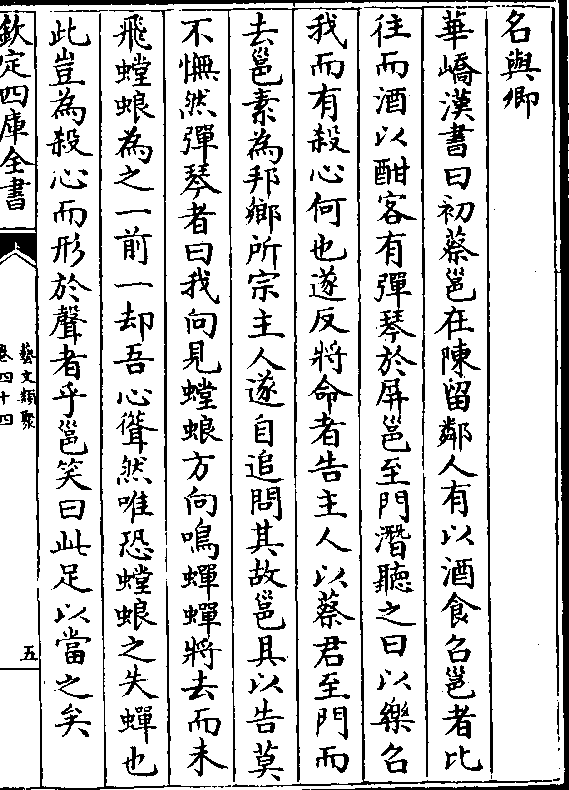 名與卿
華嶠漢書曰初蔡邕在陳留鄰人有以酒食召邕者比
往而酒以酣客有彈琴於屏邕至門潛聽之曰以樂召
我而有殺心何也遂反將命者告主人以蔡君至門而
去邕素為邦鄉所宗主人遂自追問其故邕具以告莫
不憮然彈琴者曰我向見螳蜋方向鳴蟬蟬將去而未
飛螳蜋為之一前一却吾心聳然唯恐螳蜋之失蟬也
此豈為殺心而形於聲者乎邕笑曰此足以當之矣
欽定四庫全書
藝文類聚
卷四十四
五